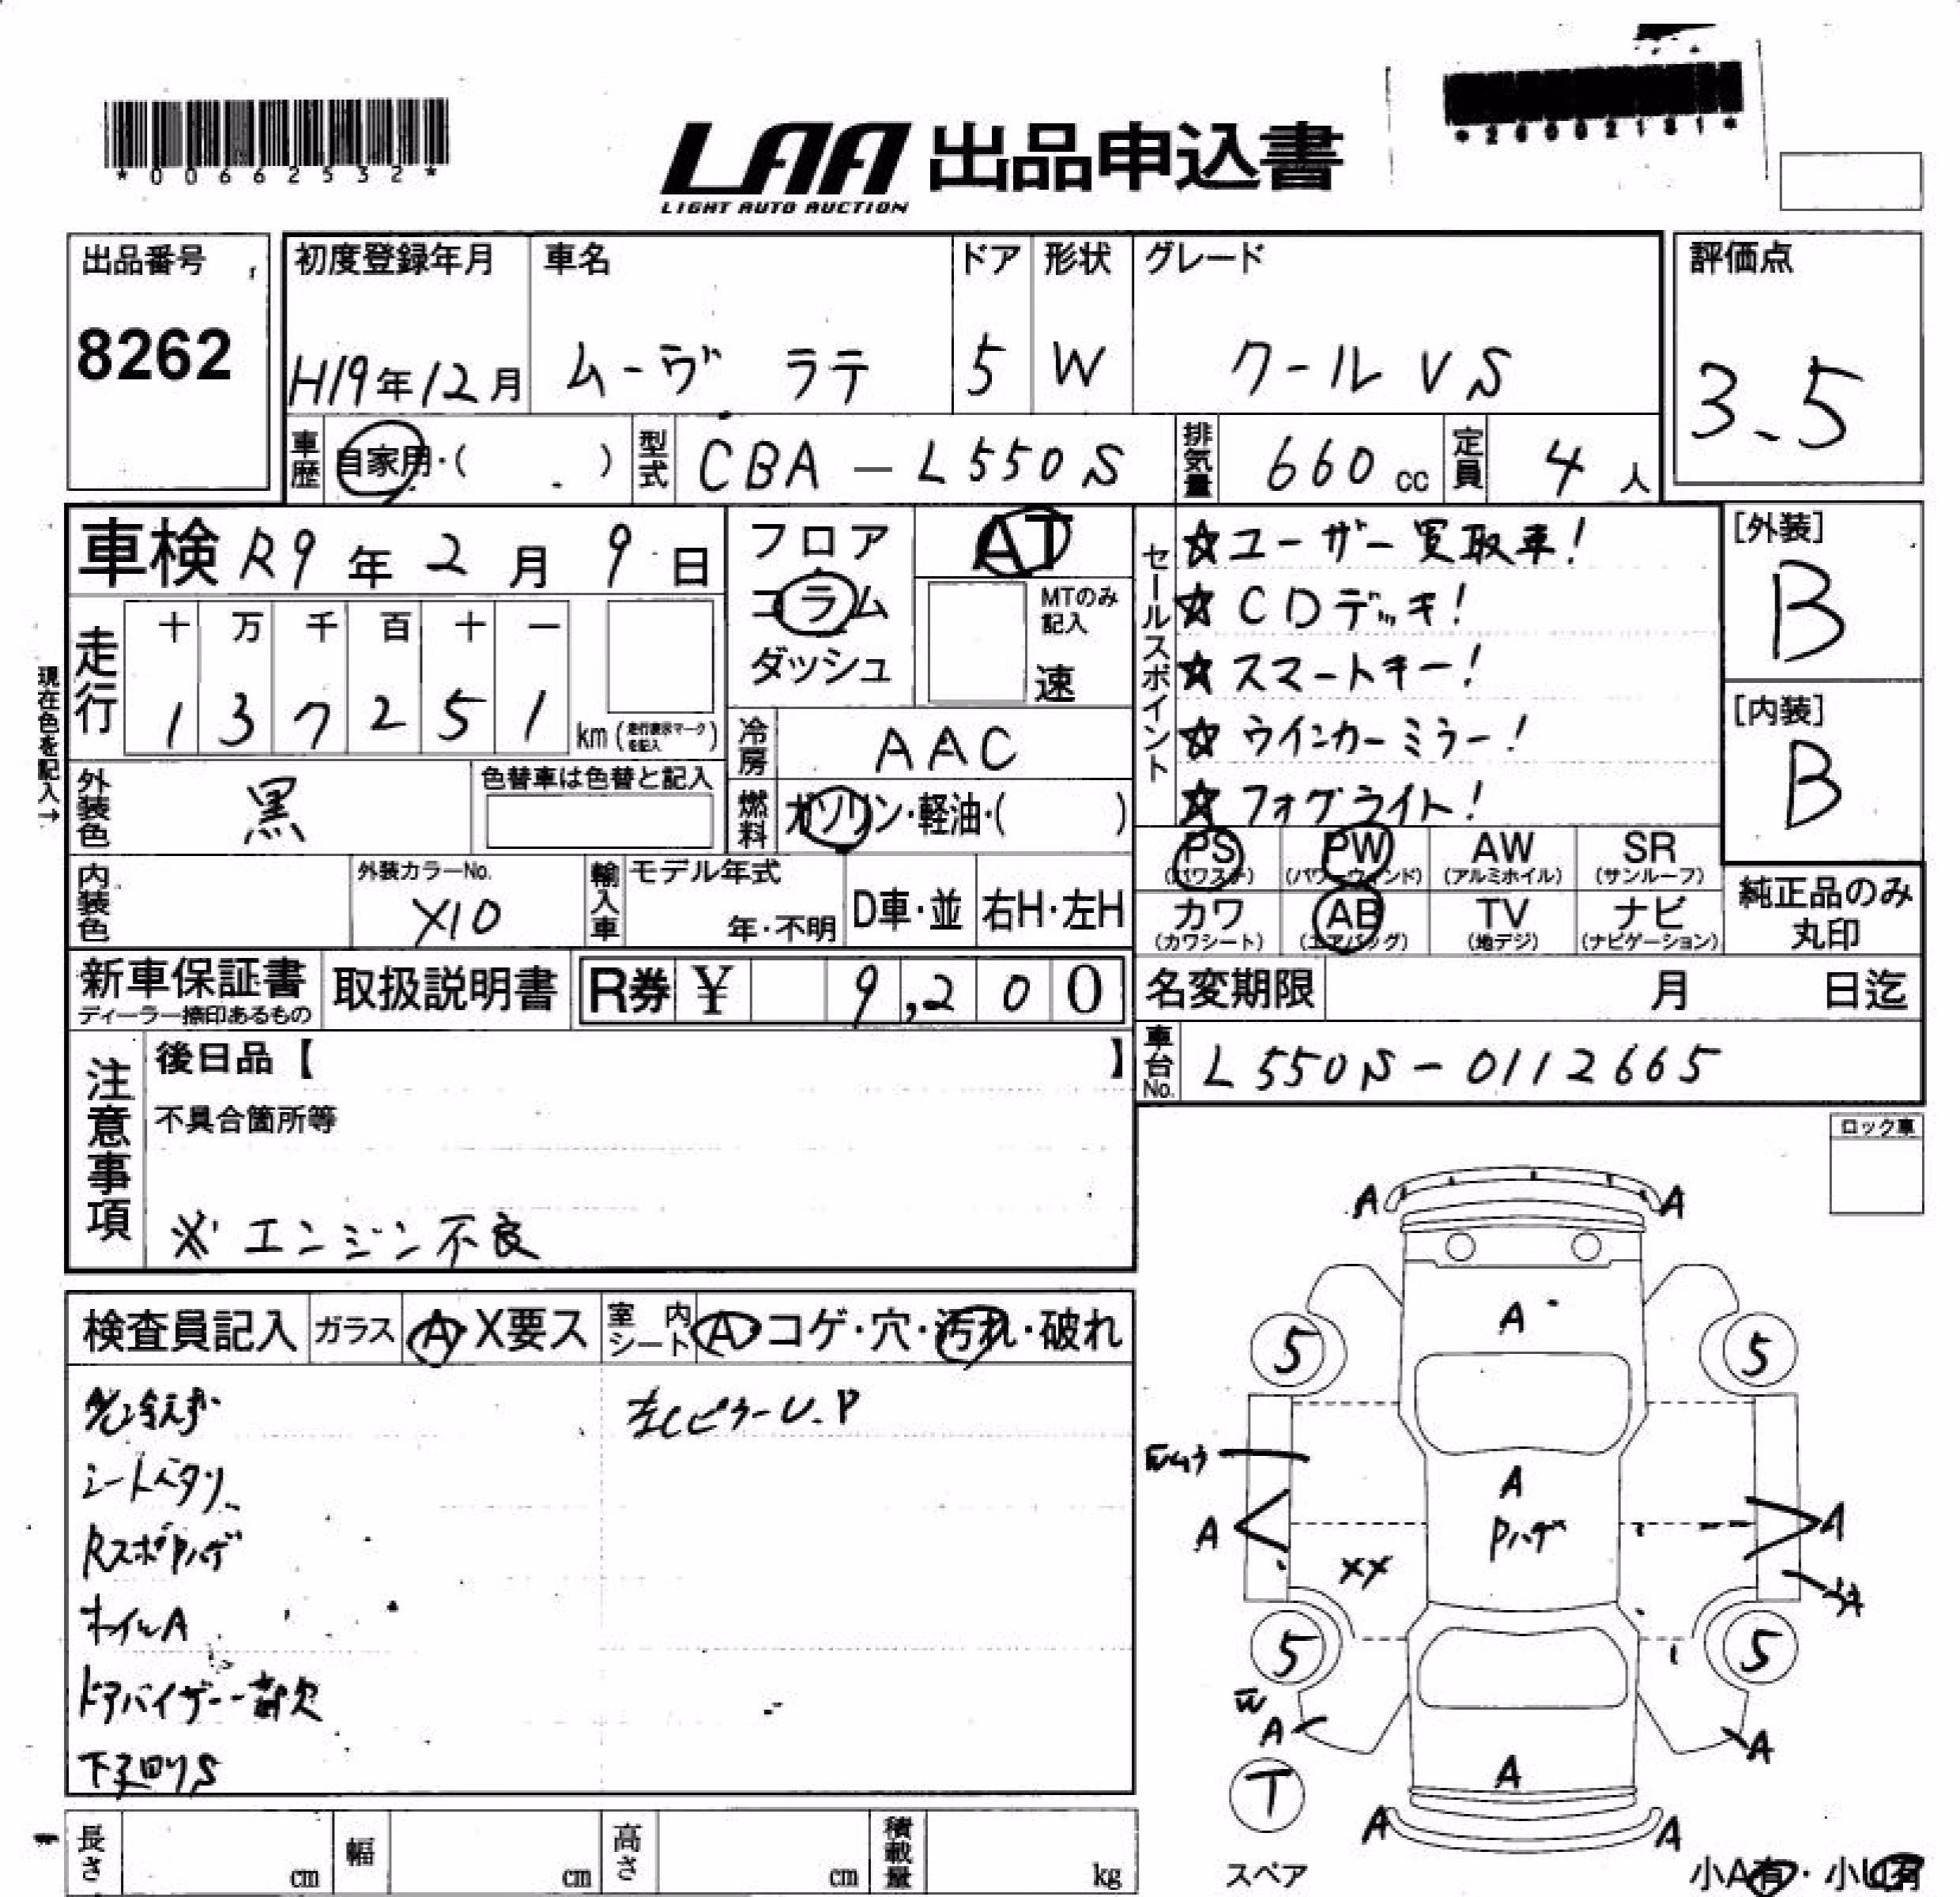 *00662532*
LAA 出品申込書
LIGHT AUTO AUCTION
出品番号
8262
初度登録年月
H19年12月
車名
ムーヴ ラテ
ドア
5
形状
W
グレード
クールVS
評価点
3.5
車歴 自家用・( )
型式 CBA-L550S
排気量 660cc
定員 4人
車検 R9年2月9日
走行
十 万 千 百 十 一
1 3 7 2 5 1 km
現在色を記入→
フロア
コラム
ダッシュ
AT
MTのみ記入
速
冷房 AAC
燃料 ガソリン・軽油・( )
セールスポイント
☆ユーザー買取車!
☆CDデッキ!
☆スマートキー!
☆ウインカーミラー!
☆フォグライト!
[外装]
B
[内装]
B
外装色 黒
色替車は色替と記入
内装色
外装カラーNo.
X10
輸入車
モデル年式
年・不明
D車・並
右H・左H
PS (パワステ)
PW (パワーウィンド)
AW (アルミホイル)
SR (サンルーフ)
カワ (カワシート)
AB (エアバッグ)
TV (地デジ)
ナビ (ナビゲーション)
純正品のみ
丸印
新車保証書
ディーラー捺印あるもの
取扱説明書
R券 ¥ 9,200
名変期限 月 日迄
車台No. L550S-0112665
注意事項
後日品【 】
不具合箇所等
※エンジン不良
ロック車
検査員記入
ガラス A・X要ス
室内シート A・コゲ・穴・汚れ・破れ
冷えず
左Cピラー U.P
シートヘタリ
RスポPハゲ
ホイルA
ドアバイザー一部欠
下廻りS
A A
A
5 5
A
Pハゲ
A A
XX
5 5
A A
A
T
スペア
A A
小A有・小U有
長さ cm
幅 cm
高さ cm
積載量 kg